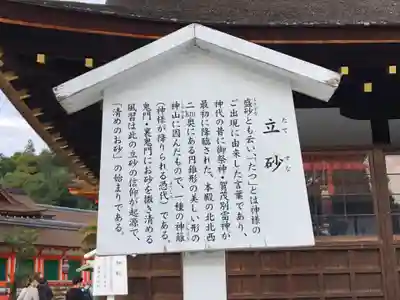 立砂
たて
ずな
盛砂とも云い、「たつ」とは神様の
ご出現に由来した言葉であり、
神代の昔に御祭神・賀茂別雷神が
最初に降臨された、本殿の北北西
二㎞奥にある円錐形の美しい形の
神山に因んだもので、一種の神籬
(神様が降りられる憑代)である。
鬼門・裏鬼門にお砂を撒き清める
風習は此の立砂の信仰が起源で、
「清めのお砂」の始まりである。